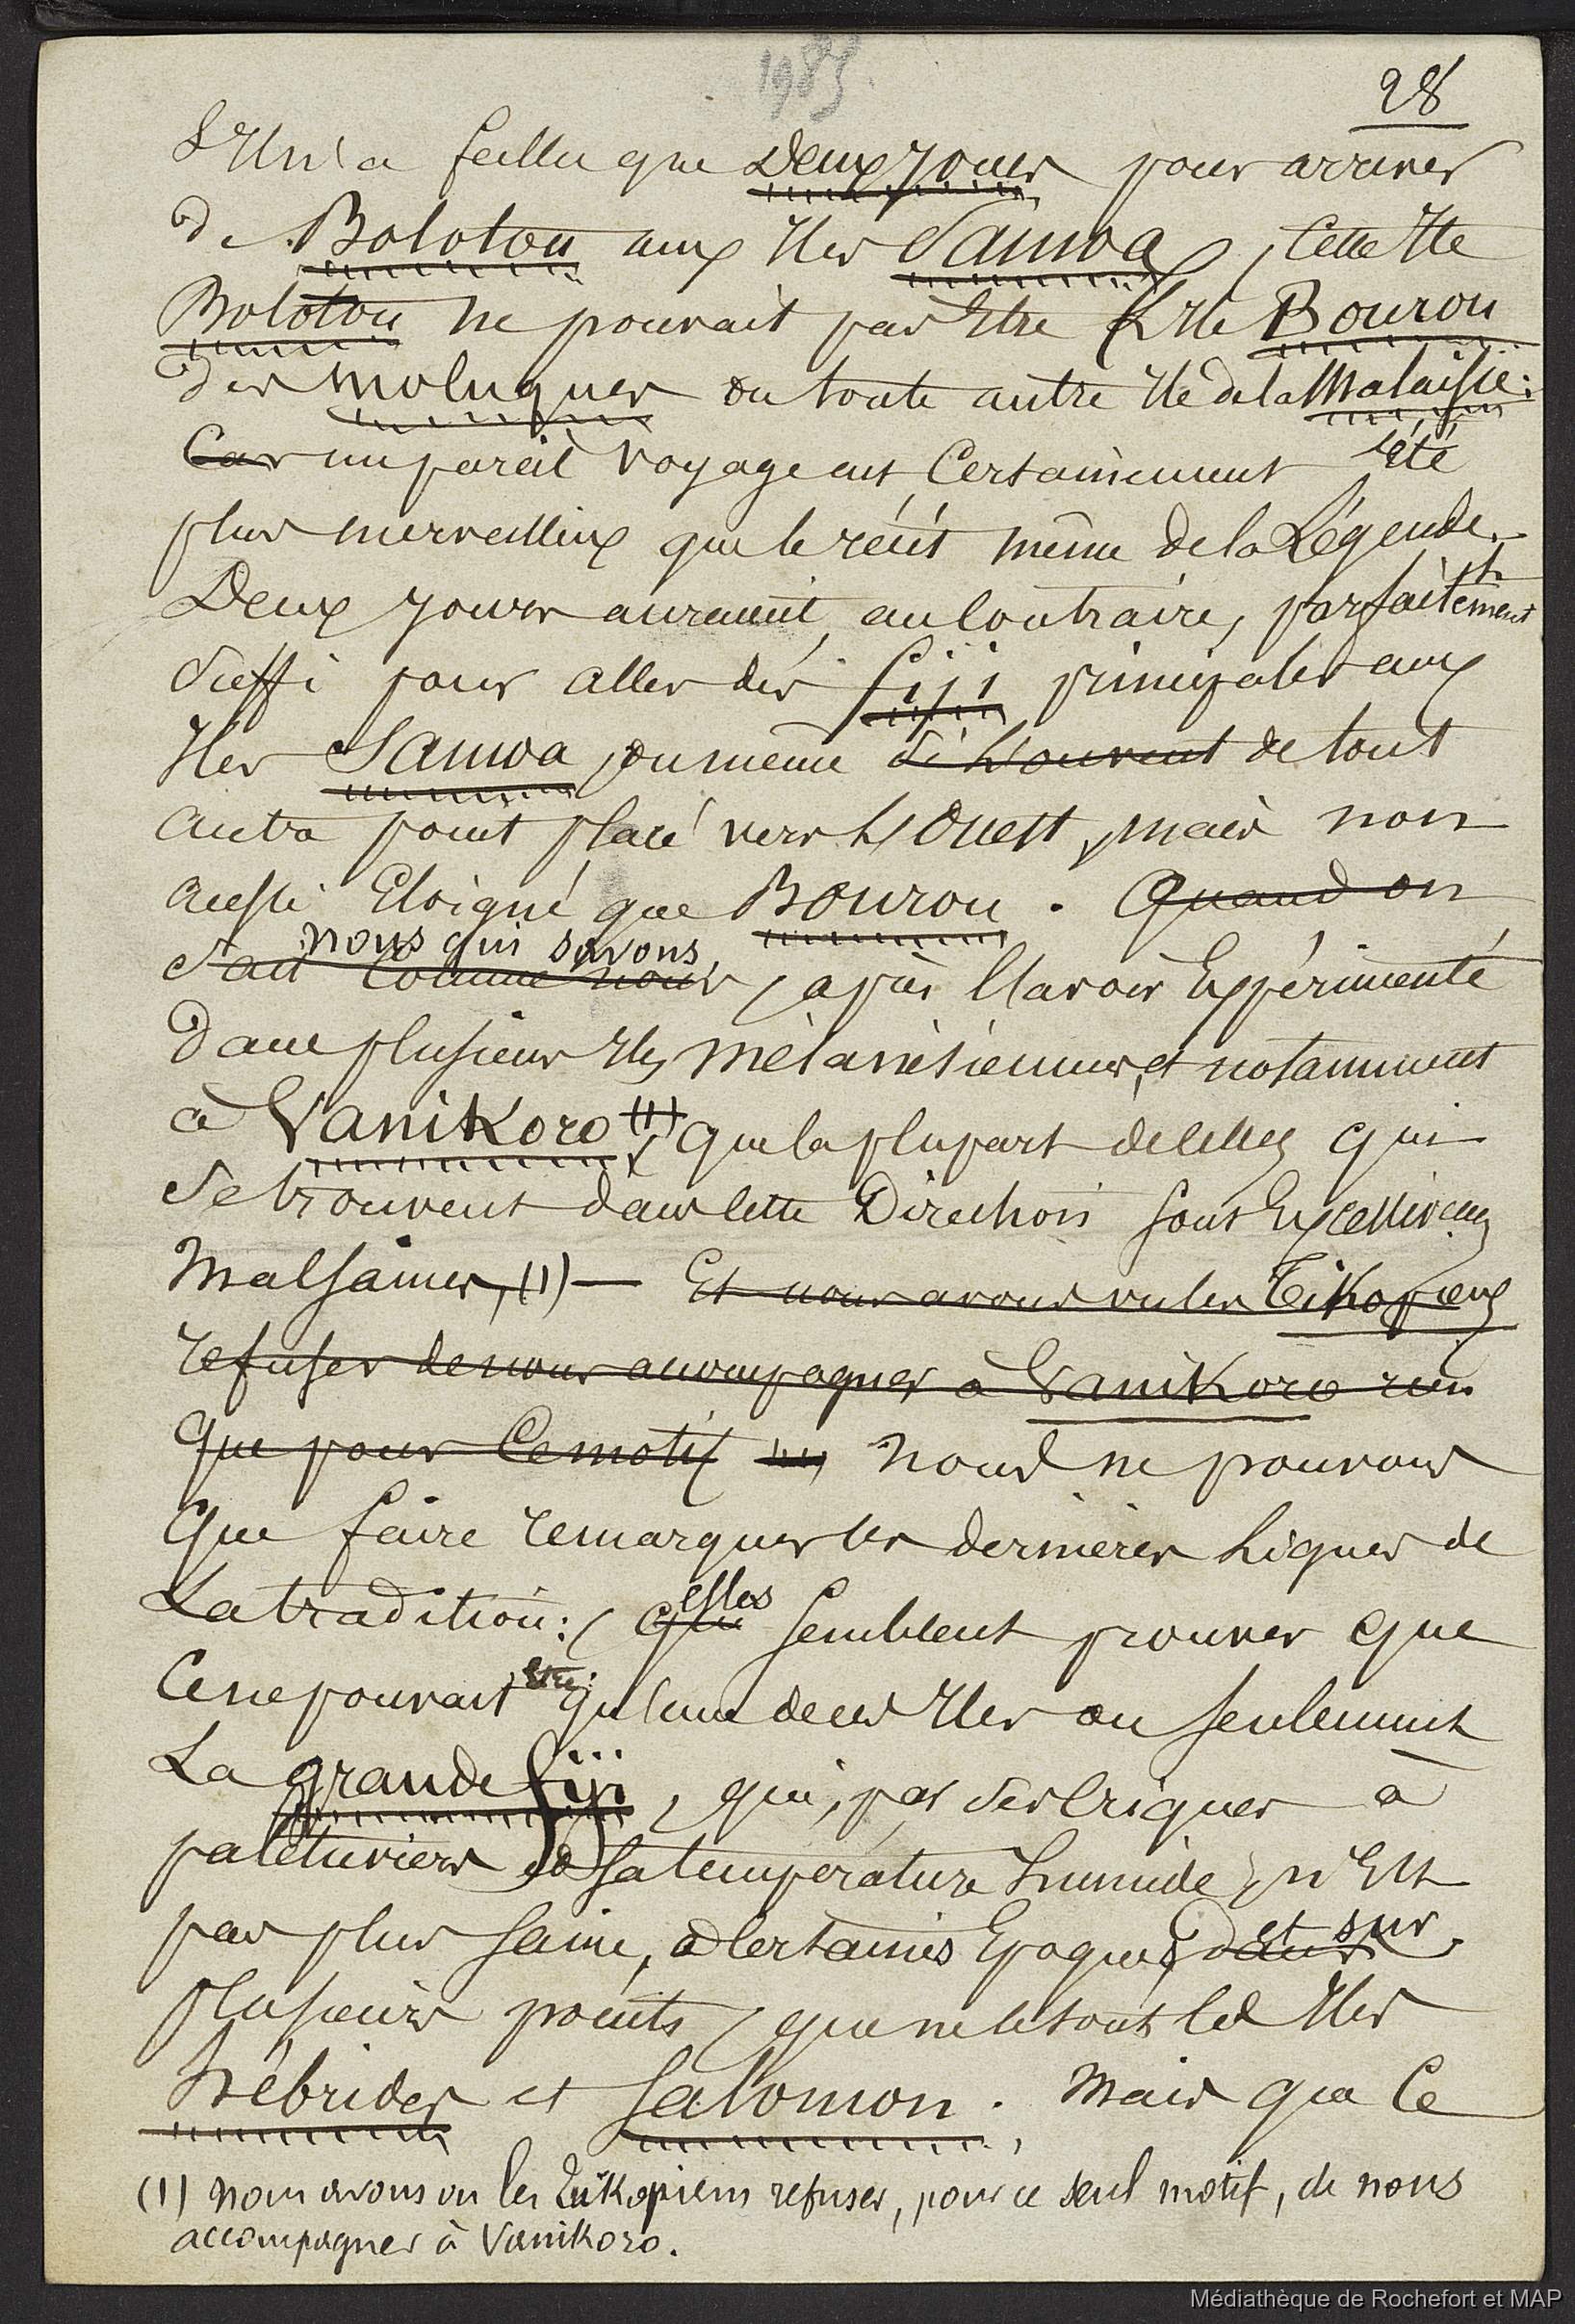 1983
28
S'il n'a fallu que Deux jours pour arriver
de Bolotou aux Iles Samoa, Cette Ile
Bolotou ne pouvait pas Etre L'Ile Bourou
des Moluques ou toute autre Ile de la Malaisie:
Car un pareil voyage eut Certainement été
plus merveilleux que le récit même de la Légende.
Deux jours auraient, au Contraire, parfaitement
Suffi pour aller des Fiji principales aux
Iles Samoa, ou même de tout
autre point placé vers L'Ouest, mais non
aussi Eloigné que Bourou. Quand on
nous qui savons,
sait Comme nous, après l'avoir Expérimenté
dans plusieurs Iles Mélanésiennes, et notamment
à Vanikoro (1), que la plupart de celles qui
se trouvent dans cette Direction sont Excessivem.
Malsaines, (1) — Et nous avons vu les Tikopiens
refuser de nous accompagner à Vanikoro rien
que pour Ce motif nous ne pouvons
que faire remarquer les dernières lignes de
La tradition: qui elles semblent prouver que
Ce ne pouvait être qu'une de ces Iles ou seulement
La grande Fiji, qui, par ses criques à
palétuviers et sa température humide, n'Est
pas plus saine, à Certaines Epoques dans et sur
plusieurs points, que ne le sont les Iles
Hébrides et Salomon. Mais que Ce
(1) nous avons vu les Tikopiens refuser, pour ce seul motif, de nous
accompagner à Vanikoro.
Médiathèque de Rochefort et MAP